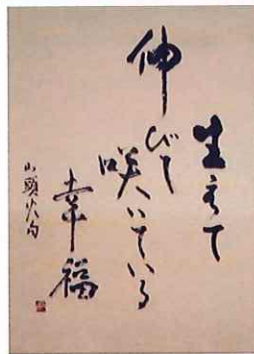 生えて
伸びて
咲いている
幸福
山頭火句